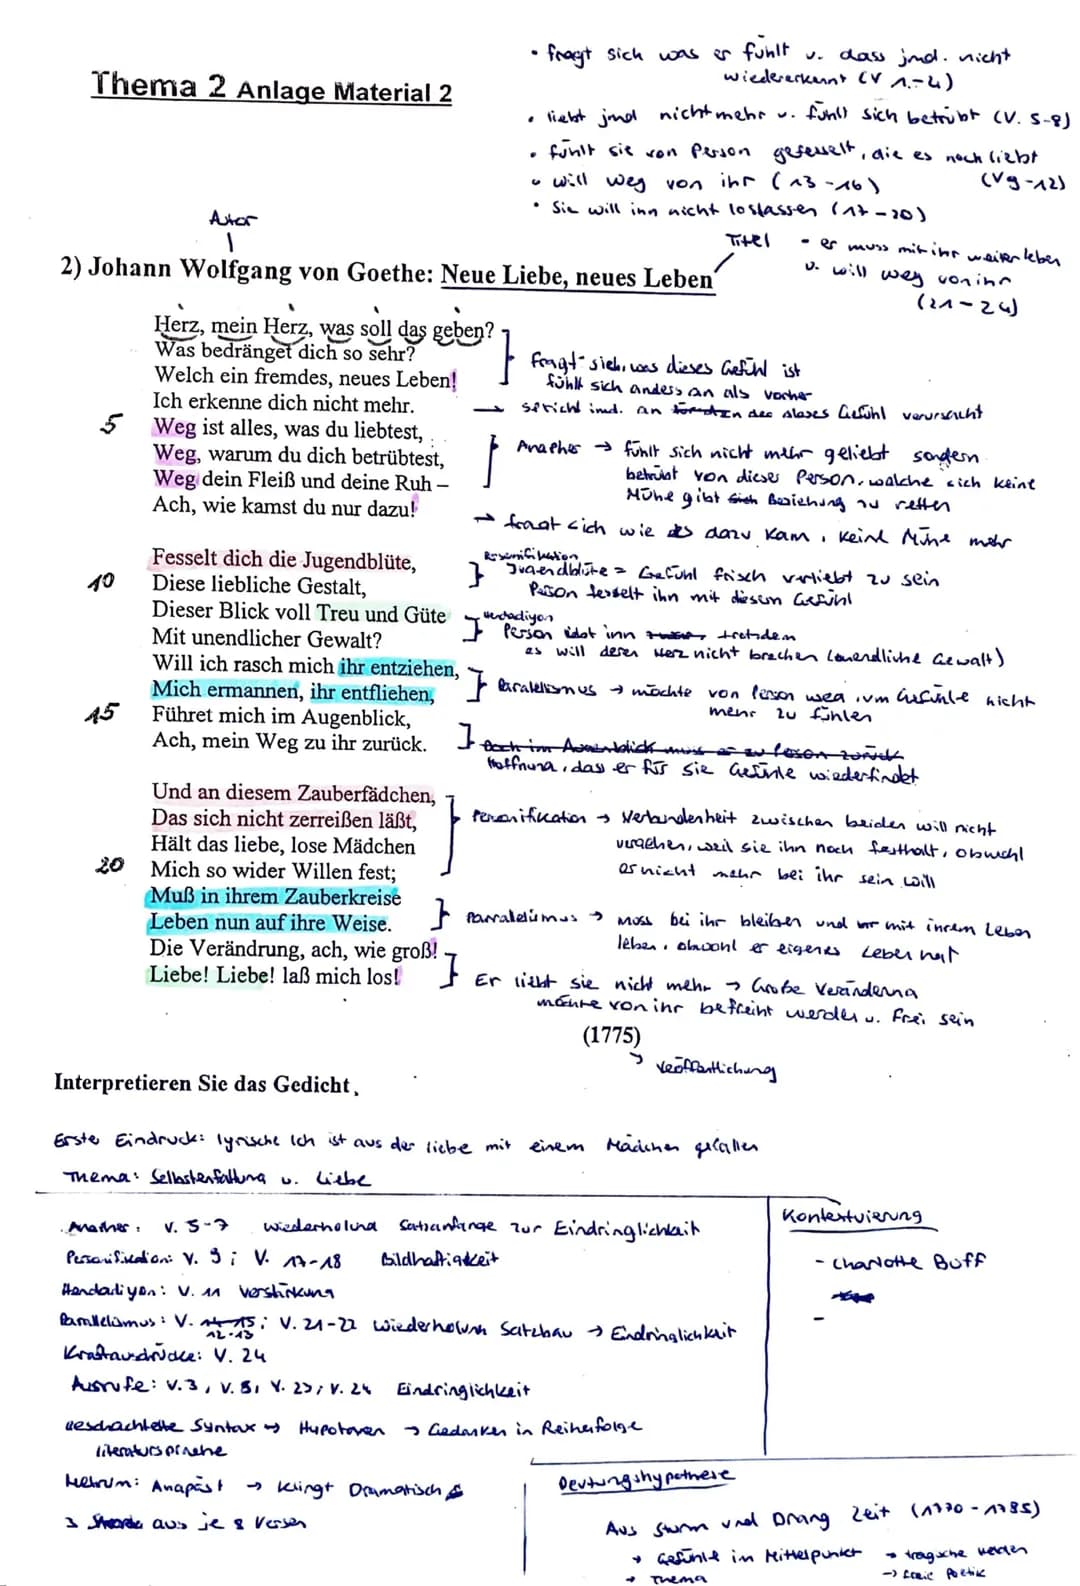 Thema 2 Anlage Material 2
• fragt sich was er fühlt u. dass jmd. nicht
wiedererkennt (V 1-4)
• liebt jmd nicht mehr u. fühlt sich betrübt (V. 5-8)
• fühlt sie von Person gefesselt, die es noch liebt
(V9-12)
• will weg von ihr (13-16)
• Sie will ihn nicht loslassen (17-20)
- er muss mit ihr weiter leben
u. will weg von ihr
(21-24)
Autor
Titel
2) Johann Wolfgang von Goethe: Neue Liebe, neues Leben
Herz, mein Herz, was soll das geben?
Was bedränget dich so sehr?
Welch ein fremdes, neues Leben!
Ich erkenne dich nicht mehr.
fragt sich, was dieses Gefühl ist
fühlt sich anders an als vorher
→ spricht jmd. an der dieses Gefühl verursacht
5 Weg ist alles, was du liebtest,
Weg, warum du dich betrübtest,
Weg dein Fleiß und deine Ruh –
Ach, wie kamst du nur dazu!
Anapher → fühlt sich nicht mehr geliebt sondern
betrübt von dieser Person, welche sich keine
Mühe gibt Beziehung zu retten
→ fragt sich wie es dazu kam, keine Mühe mehr
Fesselt dich die Jugendblüte,
10 Diese liebliche Gestalt,
Dieser Blick voll Treu und Güte
Mit unendlicher Gewalt?
Will ich rasch mich ihr entziehen,
Mich ermannen, ihr entfliehen,
15 Führet mich im Augenblick,
Ach, mein Weg zu ihr zurück.
Personifikation
Jugendblüte = Gefühl frisch verliebt zu sein
Person fesselt ihn mit diesem Gefühl
Hendadiyon
Person ihn trotzdem
es will deren Herz nicht brechen (unendliche Gewalt)
Paralelismus → möchte von Person weg, um Gefühle nicht
mehr zu fühlen
Doch im Augenblick muss er zu Person zurück
Hoffnung, dass er für sie Gefühle wiederfindet
Und an diesem Zauberfädchen,
Das sich nicht zerreißen läßt,
Hält das liebe, lose Mädchen
20 Mich so wider Willen fest;
Muß in ihrem Zauberkreise
Leben nun auf ihre Weise.
Die Verändrung, ach, wie groß!
Liebe! Liebe! laß mich los!
Personifikation → Verbundenheit zwischen beiden will nicht
vergehen, weil sie ihn noch festhält, obwohl
er nicht mehr bei ihr sein will
Parralelismus → Muss bei ihr bleiben und mit ihrem Leben
leben, obwohl er eigenes Leben hat
Er liebt sie nicht mehr → Große Veränderung
möchte von ihr befreit werden u. frei sein
(1775)
→ Veröffentlichung
Interpretieren Sie das Gedicht.
Erster Eindruck: lyrische Ich ist aus der liebe mit einem Mädchen gefallen
Thema: Selbstentfaltung u. Liebe
Anapher: V. 5-7 Wiederholung Satzanfänge zur Eindringlichkeit
Personifikation: V. 9; V. 17-18 Bildhaftigkeit
Hendadiyon: V. 11 Verstärkung
Parallelismus: V. 14-15; V. 21-22 Wiederholung Satzbau → Eindringlichkeit
12-13
Kraftausdrücke: V. 24
Ausrufe: V.3, V. 8, V. 23; V. 24 Eindringlichkeit
verschachtelte Syntax → Hypotaxen → Gedanken in Reihenfolge
literatursprache
Metrum: Anapäst → klingt Dramatisch
3 aus je 8 Versen
Kontextuierung
- Charlotte Buff
-
Deutungshypothese
Aus Sturm und Drang Zeit (1770-1785)
→ Gefühle im Mittelpunkt → tragische Helden
→ Thema → freie Poetik